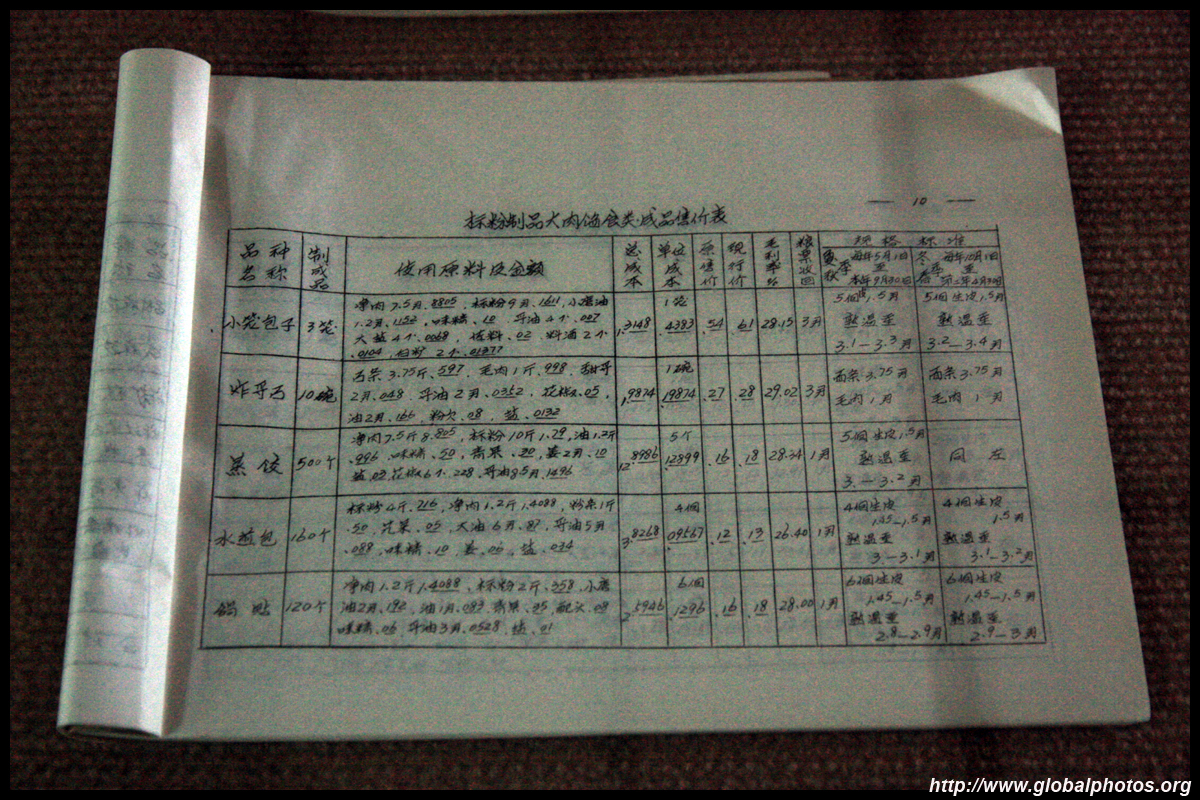 — 10 —
标粉制品大肉馅食类成品售价表
品种名称 制成品 使用原料及金额 总成本 单位成本 原售价 现行价 毛利率% 粮票收回 规格标准
夏秋季 每年5月1日至本年9月30日 冬春季 每年10月1日至第二年4月30日
小笼包子 3笼 净肉7.5斤.8805、标粉9斤.1611、小磨油
1.2月.1152、味精.10、酱油4个.007
大盐4个.0068、佐料.02、料酒2个
.0104、白矾2个.01377
1.3148 1笼 .4383 .54 .61 28.15 3月
5個 1.5月 熟温重 3.1—3.3月
5個生皮1.5月 熟温重 3.2—3.4月
炸酱面 10碗 面条3.75斤.597、毛肉1斤.998、甜酱
2月.048、酱油2月.0352、花椒.05、
油2月.166、粉欠.08、盐.0132
1.9874 1碗 .19874 .27 .28 29.02 3月
面条3.75月 毛肉1月
面条3.75月 毛肉1月
蒸饺 500个 净肉7.5斤8.805、标粉10斤1.79、油1.2斤
.996、味精.50、青菜.30、姜2月.10
盐.03、花椒6个.228、酱油8.5月.1496
12.8986 5个 .12899 .16 .18 28.34 1月
5個生皮1.5月 熟温重 3.—3.2月
同左
水煎包 160个 标粉4斤.716、净肉1.2斤1.4088、粉条1斤
.50、芹菜.05、大油6月.87、酱油5月
.088、味精.10、姜.06、盐.034
3.8268 4個 .09567 .12 .13 26.40 1月
4個生皮 1.45—1.5月 熟温重 3—3.1月
4個生皮 1.5月 熟温重 3.1—3.2月
锅贴 120个 净肉1.2斤1.4088、标粉2斤.358、小磨
油2月.192、油1月.083、青菜.35、配欠.08
味精.06、酱油3月.0528、盐.01
2.5946 6個 .1296 .16 .18 28.00 1月
6個生皮 1.45—1.5月 熟温重 2.8—2.9月
6個生皮 1.45—1.5 熟温重 2.9—3月
http://www.globalphotos.org